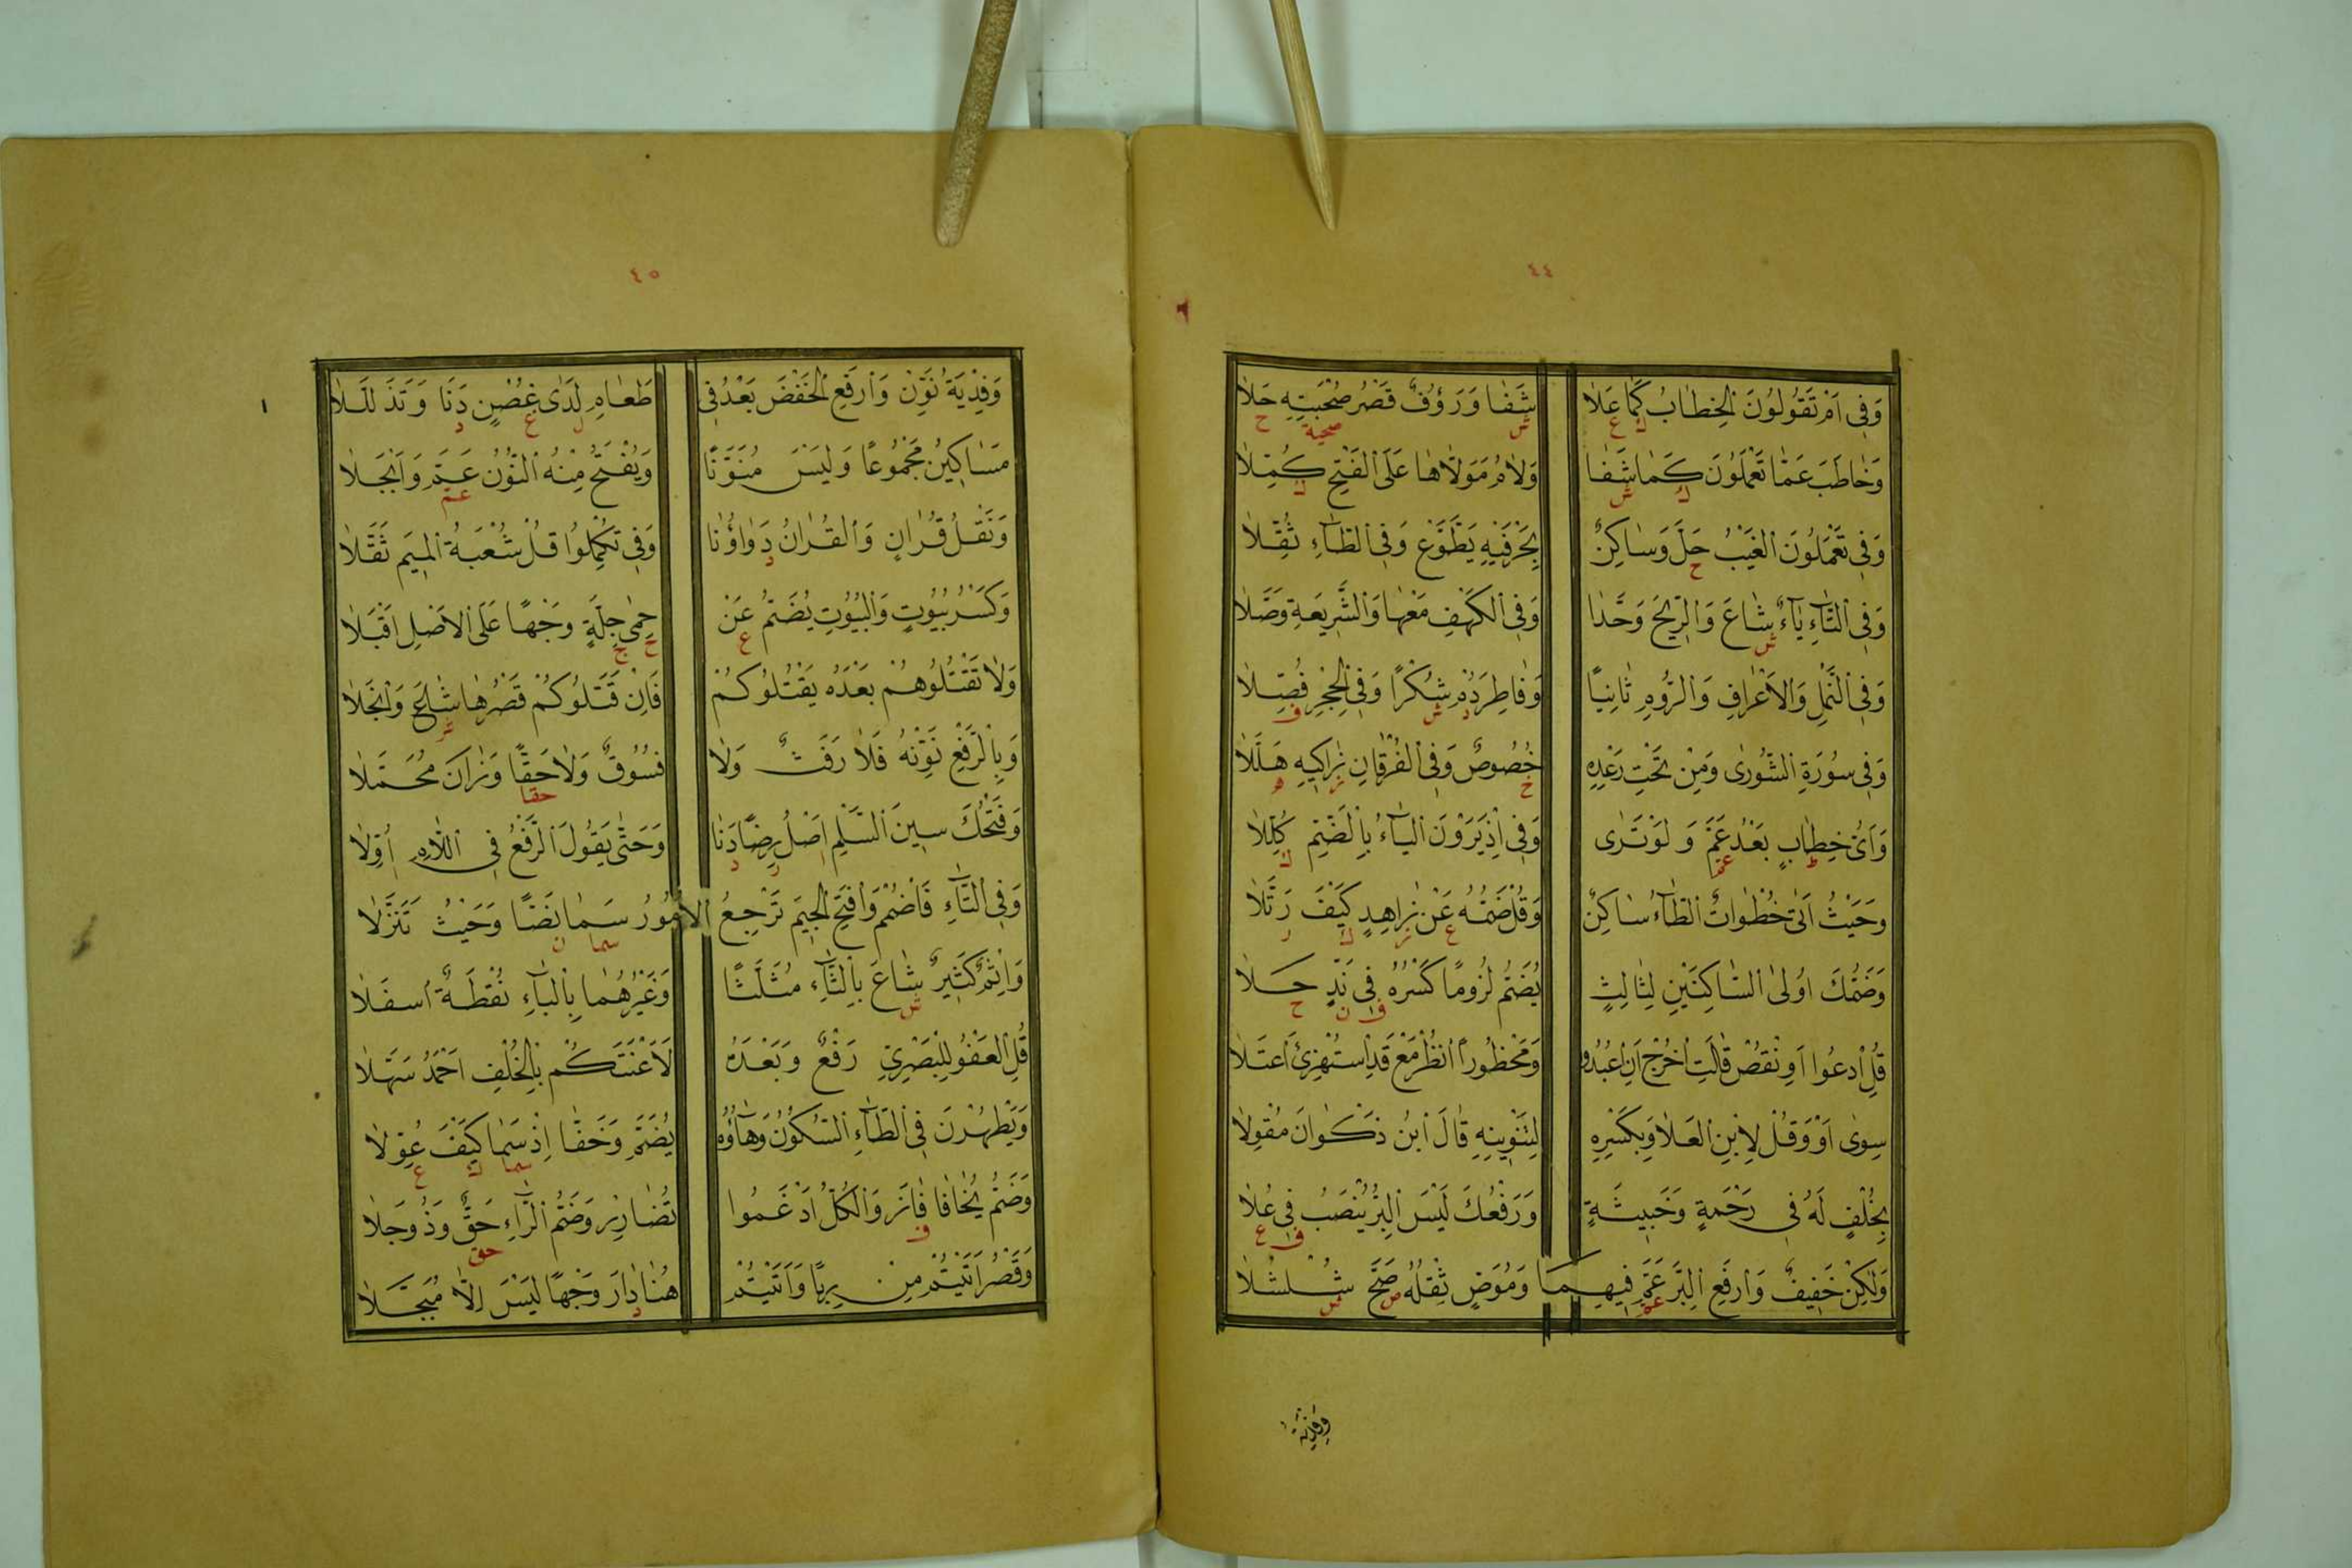 ٤٤
وَفِي اَمْ تَقُولُونَ الْخِطَابُ كَمَا عَلَا شَفَا وَرَؤُفٌ قَصْرُ صُحْبَتِهِ حَلَا
ك ع ش صحبة ح
وَخَاطَبَ عَمَّا تَعْمَلُونَ كَمَا شَفَا وَلَامُ مَوَلَّاهَا عَلَى الْفَتْحِ كُمِّلَا
ك ش ك
وَفِي تَعْمَلُونَ الْغَيْبُ حَلَّ وَسَاكِنٌ بِحَرْفَيْهِ يَطَّوَّعْ وَفِي الطَّاءِ ثُقِّلَا
ح
وَفِي التَّاءِ يَاءٌ شَاعَ وَالرِّيحَ وَحَّدَا وَفِي الْكَهْفِ مَعْهَا وَالشَّرِيعَةِ وَصَّلَا
ش
وَفِي النَّمْلِ وَالْاَعْرَافِ وَالرُّومِ ثَانِيًا وَفَاطِرَ دُمْ شُكْرًا وَفِي الْحِجْرِ فُصِّلَا
د ش ف
وَفِي سُورَةِ الشُّورٰى وَمِنْ تَحْتِ رَعْدِهِ خُصُوصٌ وَفِي الْفُرْقَانِ زَاكِيهِ هَلَّلَا
خ ز ه
وَاَىُّ خِطَابٍ بَعْدُ عَمَّ وَلَوْ تَرٰى وَفِي اِذْ يَرَوْنَ الْيَاءُ بِالضَّمِّ كُلِّلَا
عم ك
وَحَيْثُ اَتٰى خُطْوَاتٌ الطَّاءُ سَاكِنٌ وَقُلْ ضَمُّهُ عَنْ زَاهِدٍ كَيْفَ رَتَّلَا
ع ز ك ر
وَضَمُّكَ اُولَى السَّاكِنَيْنِ لِثَالِثٍ يُضَمُّ لُزُومًا كَسْرُهُ فِي نَدٍ حَلَا
ف ن ح
قُلِ ادْعُوا اَوِ انْقُصْ قَالَتِ اخْرُجْ اَنِ اعْبُدُوا وَمَحْظُورًا انْظُرْ مَعْ قَدِ اسْتُهْزِئَ اعْتَلَا
سِوٰى اَوْ وَقُلْ لِابْنِ الْعَلَا وَبِكَسْرِهِ لِتَنْوِينِهِ قَالَ ابْنُ ذَكْوَانَ مُقْوِلَا
بِخُلْفٍ لَهُ فِي رَحْمَةٍ وَخَبِيثَةٍ وَرَفْعُكَ لَيْسَ الْبِرُّ يُنْصَبُ فِي عُلَا
ف ع
وَلٰكِنْ خَفِيفٌ وَارْفَعِ الْبِرَّ عَمَّ فِيهِمَا وَمُوَصٍّ ثِقْلُهُ صَحَّ شُلْشُلَا
عم ص ش
وفدية
٤٥
وَفِدْيَةُ نَوِّنْ وَارْفَعِ الْخَفْضَ بَعْدُ فِي طَعَامِ لَدٰى غُصْنٍ دَنَا وَتَذَلَّلَا
ل غ د
مَسَاكِينَ مَجْمُوعًا وَلَيْسَ مُنَوَّنًا وَيُفْتَحُ مِنْهُ النُّونُ عَمَّ وَاَبْجَلَا
عم
وَنَقْلُ قُرَانٍ وَالْقُرَانُ دَوَاؤُنَا وَفِي تُكْمِلُوا قُلْ شُعْبَةُ الْمِيمَ ثَقَّلَا
د
وَكَسْرُ بُيُوتٍ وَالْبُيُوتِ يُضَمُّ عَنْ حِمٰى جِلَّةٍ وَجْهًا عَلَى الْاَصْلِ اَقْبَلَا
ع ح ج
وَلَا تَقْتُلُوهُمْ بَعْدَهُ يَقْتُلُوكُمْ فَاِنْ قَتَلُوكُمْ قَصْرُهَا شَاعَ وَانْجَلَا
ش
وَبِالرَّفْعِ نَوِّنْهُ فَلَا رَفَثٌ وَلَا فُسُوقٌ وَلَا حَقًّا وَزَانَ مُحَمَّلَا
حقا
وَفَتْحُكَ سِينَ السِّلْمِ اَصْلُ رِضًا دَنَا وَحَتّٰى يَقُولَ الرَّفْعُ فِي اللَّامِ اُوِّلَا
ر د
وَفِي التَّاءِ فَاضْمُمْ وَافْتَحِ الْجِيمَ تَرْجِعُ الْاُمُورُ سَمَا نَصًّا وَحَيْثُ تَنَزَّلَا
سما ن
وَاِثْمٌ كَثِيرٌ شَاعَ بِالثَّاءِ مُثَلَّثًا وَغَيْرُهُمَا بِالْبَاءِ نُقْطَةٌ اسْفَلَا
ش
قُلِ الْعَفْوُ لِلْبَصْرِيِّ رَفْعٌ وَبَعْدَهُ لَاَعْنَتَكُمْ بِالْخُلْفِ اَحْمَدُ سَهَّلَا
وَيَطْهُرْنَ فِي الطَّاءِ السُّكُونُ وَهَاؤُهُ يُضَمُّ وَخَفَّا اِذْ سَمَا كَيْفَ عُوِّلَا
سما ك ع
وَضَمُّ يُخَافَا فَازَ وَالْكُلُّ اَدْغَمُوا تُضَارِرْ وَضَمُّ الرَّاءِ حَقٌّ وَذُو جَلَا
ف حق
وَقَصْرُ اَتَيْتُمْ مِنْ رِبًا وَاَتَيْتُمْ هُنَا دَارَ وَجْهًا لَيْسَ اِلَّا مُبَجَّلَا
د